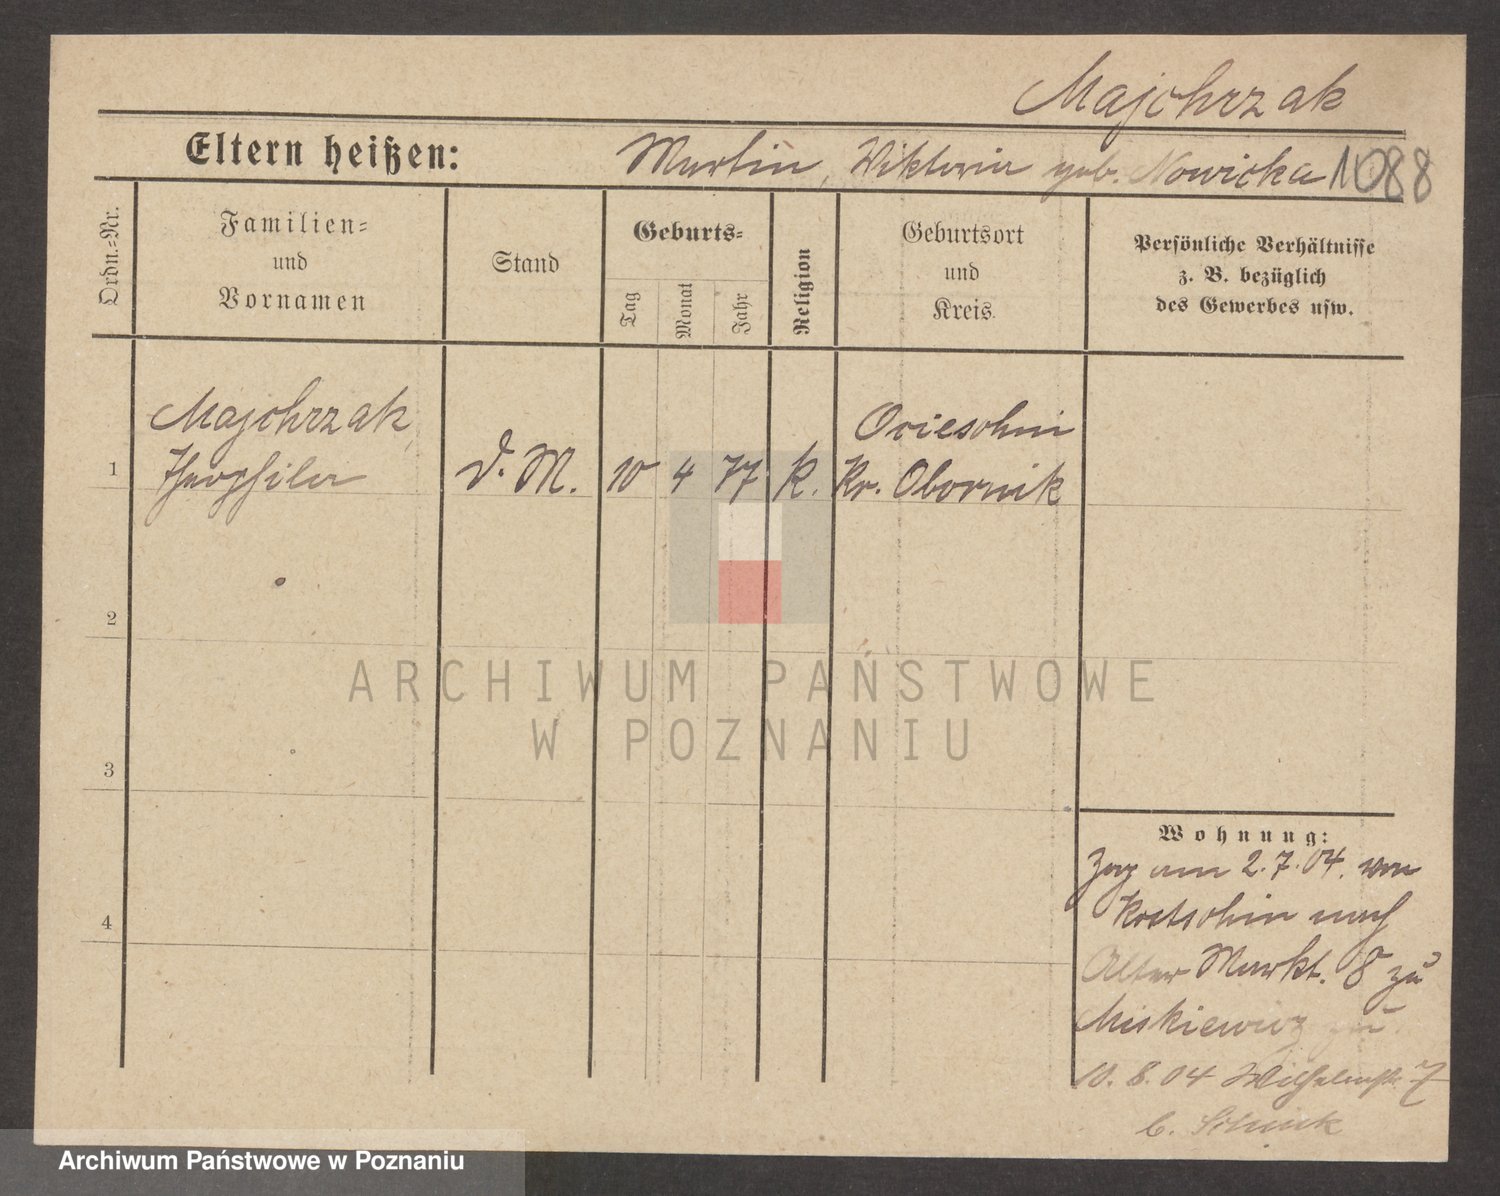 Majchrzak
Eltern heißen: Martin, Viktoria geb. Nowicka 1088
Ordn.=Nr.
Familien=
und
Vornamen
Stand
Geburts=
Tag
Monat
Jahr
Religion
Geburtsort
und
Kreis
Persönliche Verhältnisse
z. B. bezüglich
des Gewerbes usw.
Majchrzak
Ocieschin
1 Theophila D. M. 10 4 77 k. Kr. Obornik
2
3
4
ARCHIWUM PAŃSTWOWE
W POZNANIU
Wohnung:
Zog am 2.7.04. von
nach
Alter Markt. 8 zu
Miskiewicz zu
10. 8. 04 Wilhelmstr. 7
b.
Archiwum Państwowe w Poznaniu